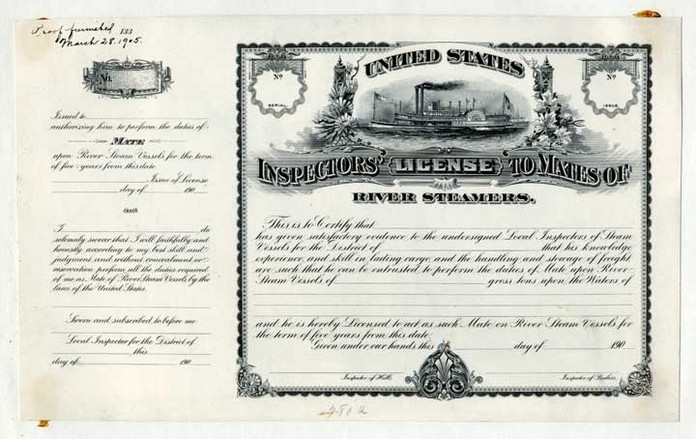 Proof furnished 133
March 28, 1905.
No.
Issued to
authorizing him to perform the duties of
MATE
upon River Steam Vessels for the term
of five years from this date.
Issue of License
day of 190
Oath
I do
solemnly swear that I will faithfully and
honestly according to my best skill and
judgment, and without concealment or
reservation perform all the duties required
of me as Mate of River Steam Vessels by the
laws of the United States.
Sworn and subscribed to before me
Local Inspector for the District of
this
day of 190
UNITED STATES
No
SERIAL.
No
ISSUE.
INSPECTORS' LICENSE TO MATES OF
RIVER STEAMERS.
This is to Certify that
has given satisfactory evidence to the undersigned Local Inspectors of Steam
Vessels for the District of that his knowledge
experience and skill in lading cargo, and the handling and stowage of freight
are such that he can be entrusted to perform the duties of Mate upon River
Steam Vessels of gross tons upon the Waters of
and he is hereby Licensed to act as such Mate on River Steam Vessels for
the term of five years from this date.
Given under our hands this day of 190
Inspector of Hulls.
Inspector of Boilers.